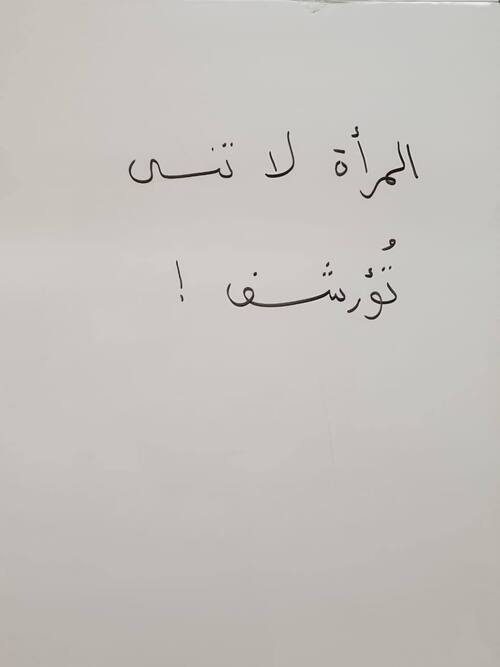 المرأة لا تنسى
تُؤرشف !